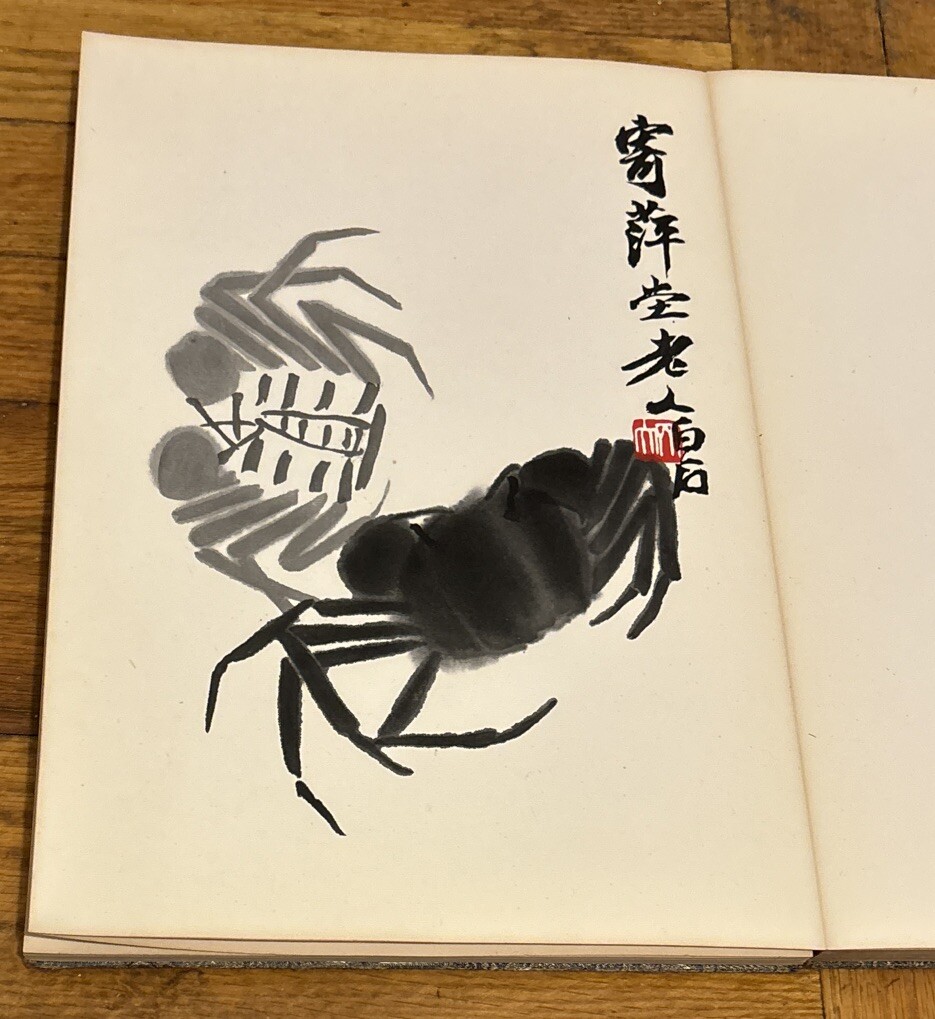 寄萍堂老人白石